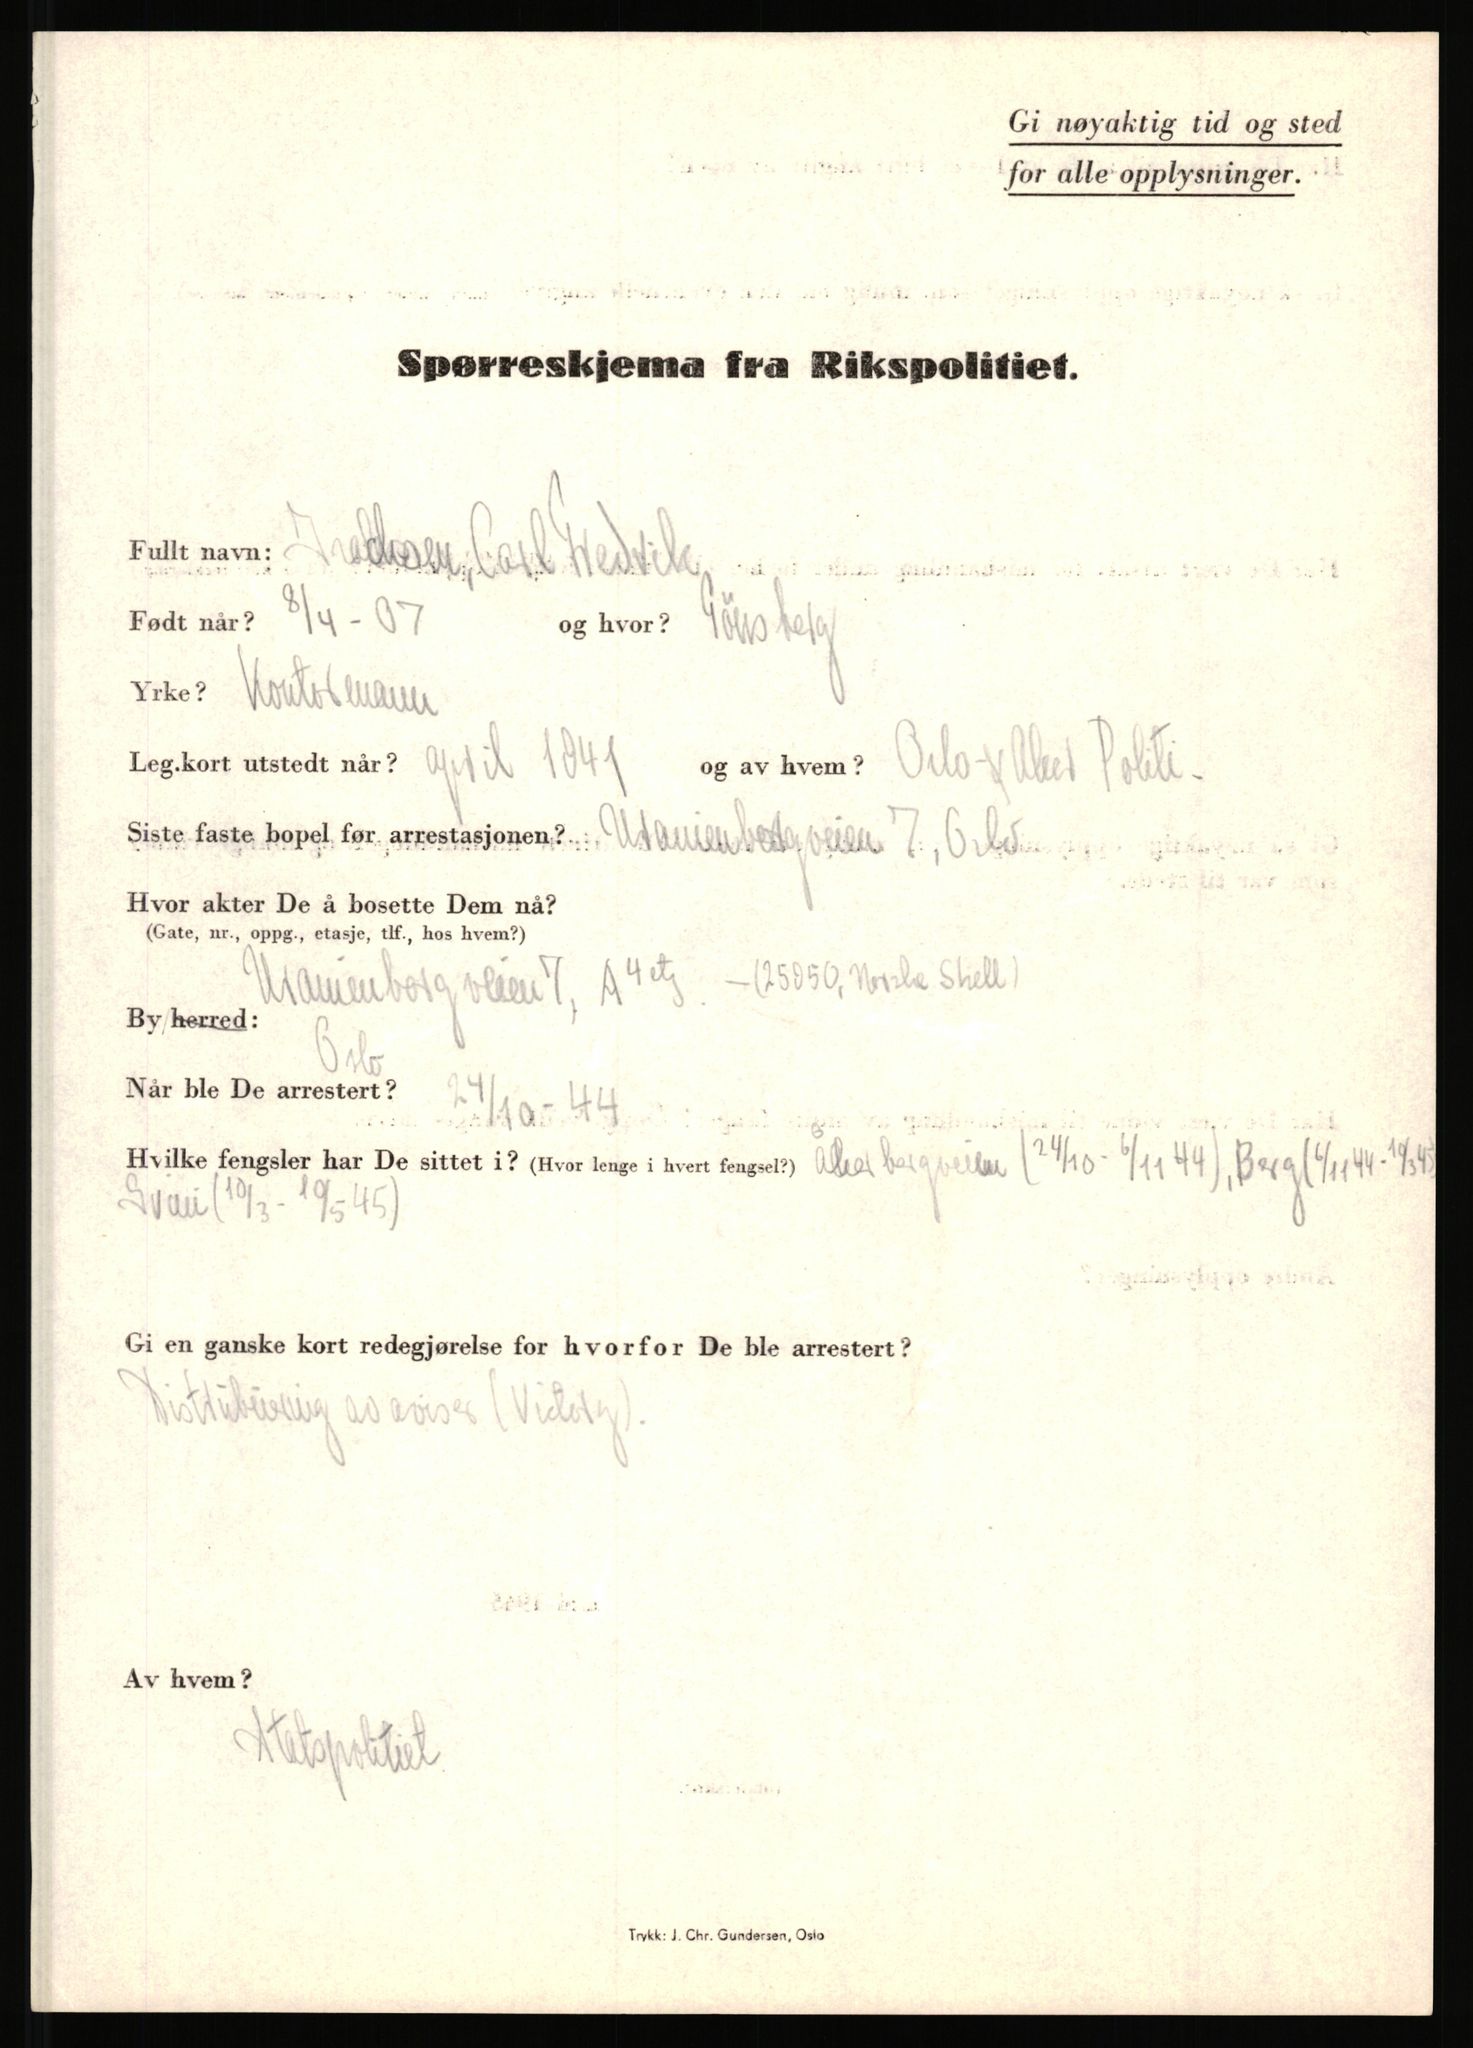 Gi nøyaktig tid og sted
for alle opplysninger.
Spørreskjema fra Rikspolitiet.
Fullt navn: Carl Fredrik
Født når? 8/4 - 07 og hvor? Tönsberg
Yrke? Kontormann
Leg.kort utstedt når? april 1941 og av hvem? Oslo & Aker Politi -
Siste faste bopel før arrestasjonen? Uranienborgveien 7, Oslo
Hvor akter De å bosette Dem nå?
(Gate, nr., oppg., etasje, tlf., hos hvem?)
Uranienborgveien 7, A 4 etg. - (25950, Norske Shell)
By/herred:
Oslo
Når ble De arrestert? 24/10 - 44
Hvilke fengsler har De sittet i? (Hvor lenge i hvert fengsel?) Åkerbergveien (24/10 - 6/11 44), Berg (6/11 44 - 10/3 45)
Grini (10/3 - 10/5 45)
Gi en ganske kort redegjørelse for hvorfor De ble arrestert?
Distribuering av aviser (Victory).
Av hvem?
Statspolitiet
Trykk: J. Chr. Gundersen, Oslo